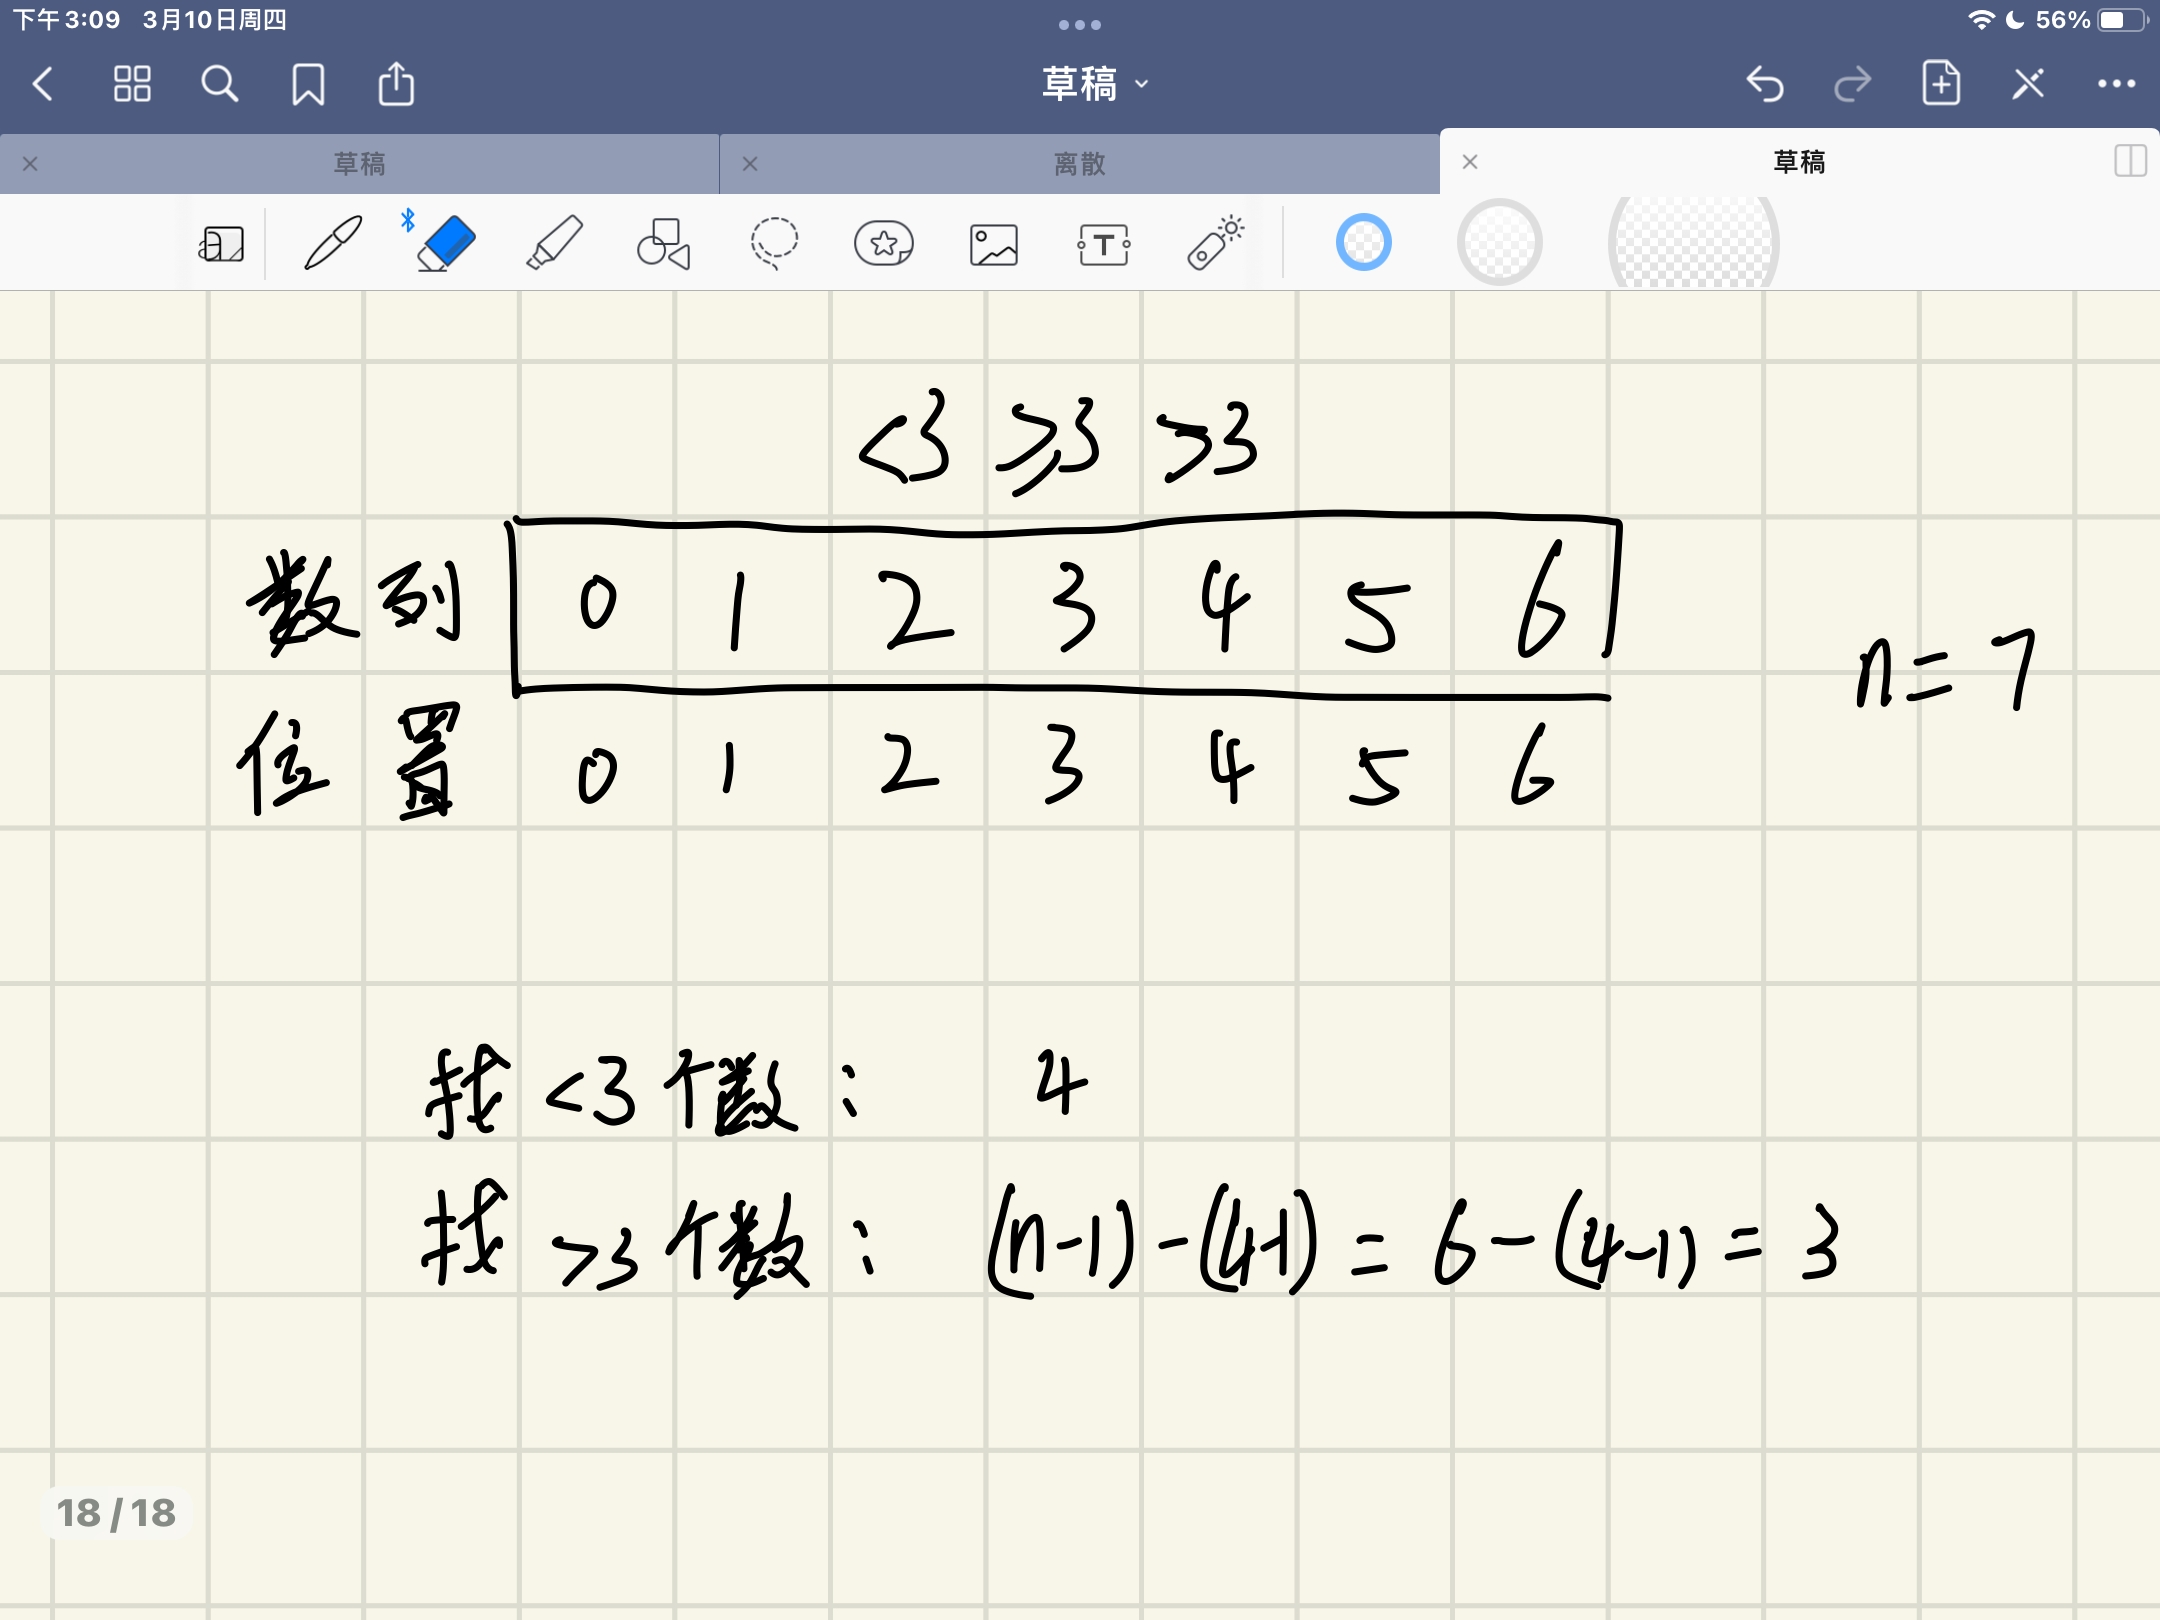 下午3:09 3月10日周四
56%
草稿
草稿
离散
草稿
<3 ≥3 >3
数列 0 1 2 3 4 5 6
n=7
位置 0 1 2 3 4 5 6
找 <3 个数： 4
找 >3 个数： (n-1)-(4-1) = 6-(4-1) = 3
18 / 18